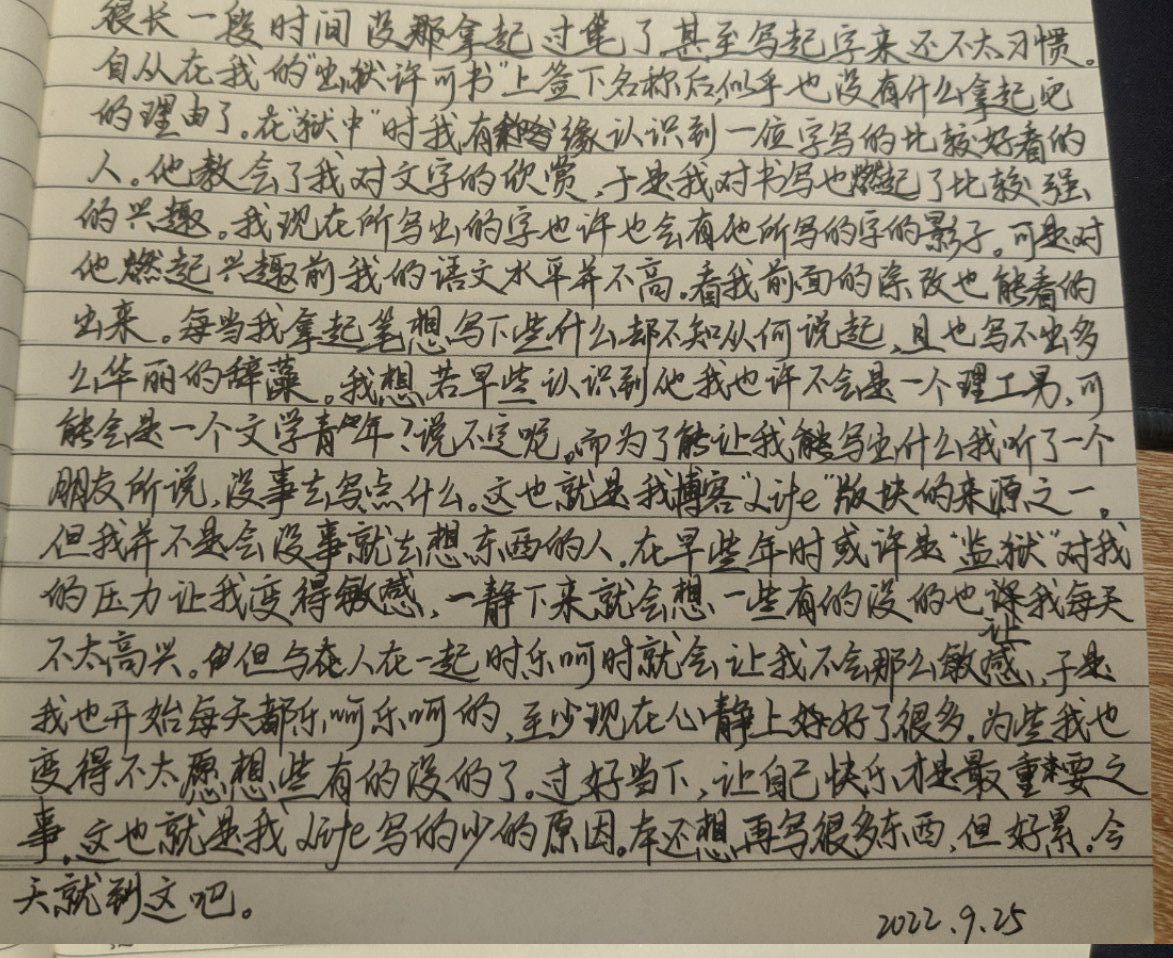 很长一段时间没那拿起过笔了,甚至写起字来还不太习惯。
自从在我的"出狱许可书"上签下名称后,似乎也没有什么拿起吧
的理由了。在"狱中"时我有缘认识到一位字写的比较好看的
人。他教会了我对文字的欣赏,于是我对书写也燃起了比较强
的兴趣。我现在所写出的字也许也会有他所写的字的影子。可是对
他燃起兴趣前我的语文水平并不高。看我前面的涂改也能看的
出来。每当我拿起笔想写下些什么却不知从何说起,且也写不出多
么华丽的辞藻。我想若早些认识到他我也许不会是一个理工男,可
能会是一个文学青年?说不定呢。而为了能让我能写出什么我听了一个
朋友所说,没事去写点什么。这也就是我博客"Life"版块的来源之一。
但我并不是会没事就去想东西的人。在早些年时或许是"监狱"对我
的压力让我变得敏感,一静下来就会想一些有的没的也让我每天
不太高兴。但与在人在一起时乐呵时就会让我不会那么敏感,于是
我也开始每天都乐呵乐呵的,至少现在心静上好了很多。为些我也
变得不太愿想些有的没的了。过好当下,让自己快乐才是最重要之
事。这也就是我Life写的少的原因。本还想再写很多东西,但好累。今
天就到这吧。
2022.9.25